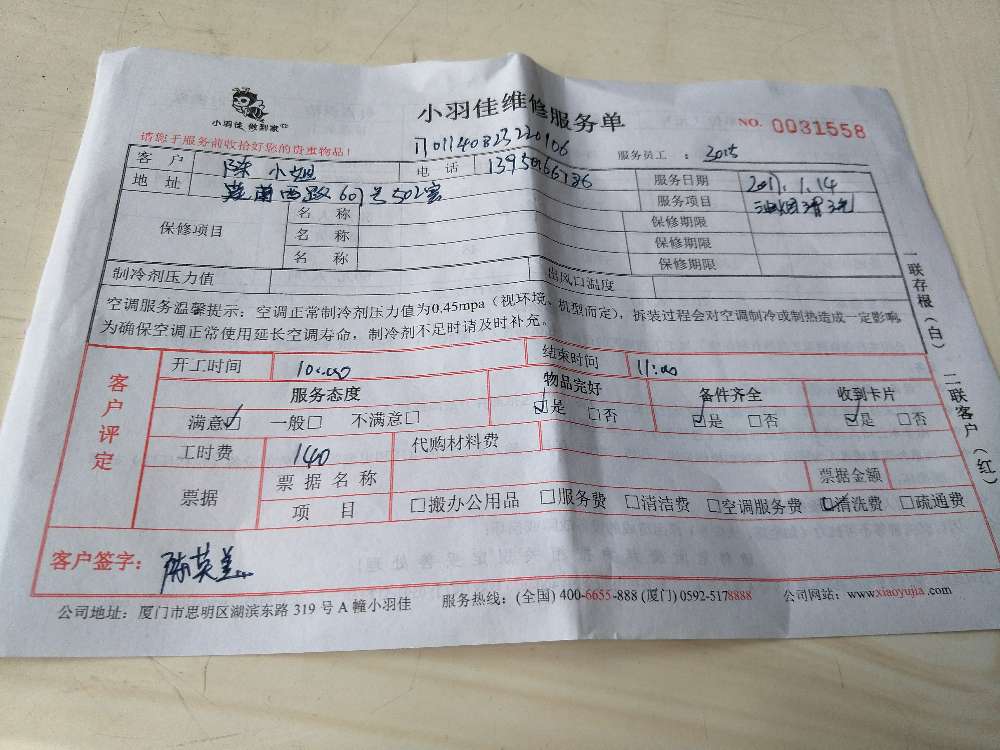 小羽佳 做到家
小羽佳维修服务单
NO. 0031558
请您于服务前收拾好您的贵重物品!
服务员工 : 3015
客 户 陈小姐 电 话
地 址 莲前西路607号502室
服务日期 2017.1.14
服务项目
保修项目
名 称 保修期限
名 称 保修期限
名 称 保修期限
制冷剂压力值 出风口温度
空调服务温馨提示:空调正常制冷剂压力值为0.45mpa(视环境、机型而定),拆装过程会对空调制冷或制热造成一定影响,
为确保空调正常使用延长空调寿命,制冷剂不足时请及时补充。
客户评定
开工时间 10:00 结束时间 11:00
服务态度 物品完好 备件齐全 收到卡片
满意☑ 一般□ 不满意□ ☑是 □否 ☑是 □否 ☑是 □否
工时费 140 代购材料费
票据 票据名称 票据金额
项 目 □搬办公用品 □服务费 □清洁费 □空调服务费 ☑清洗费 □疏通费
客户签字:
公司地址:厦门市思明区湖滨东路 319 号 A 幢小羽佳 服务热线:(全国) 400-6655-888 (厦门) 0592-5178888 公司网站:www.xiaoyujia.com
一联存根(白) 二联客户(红)